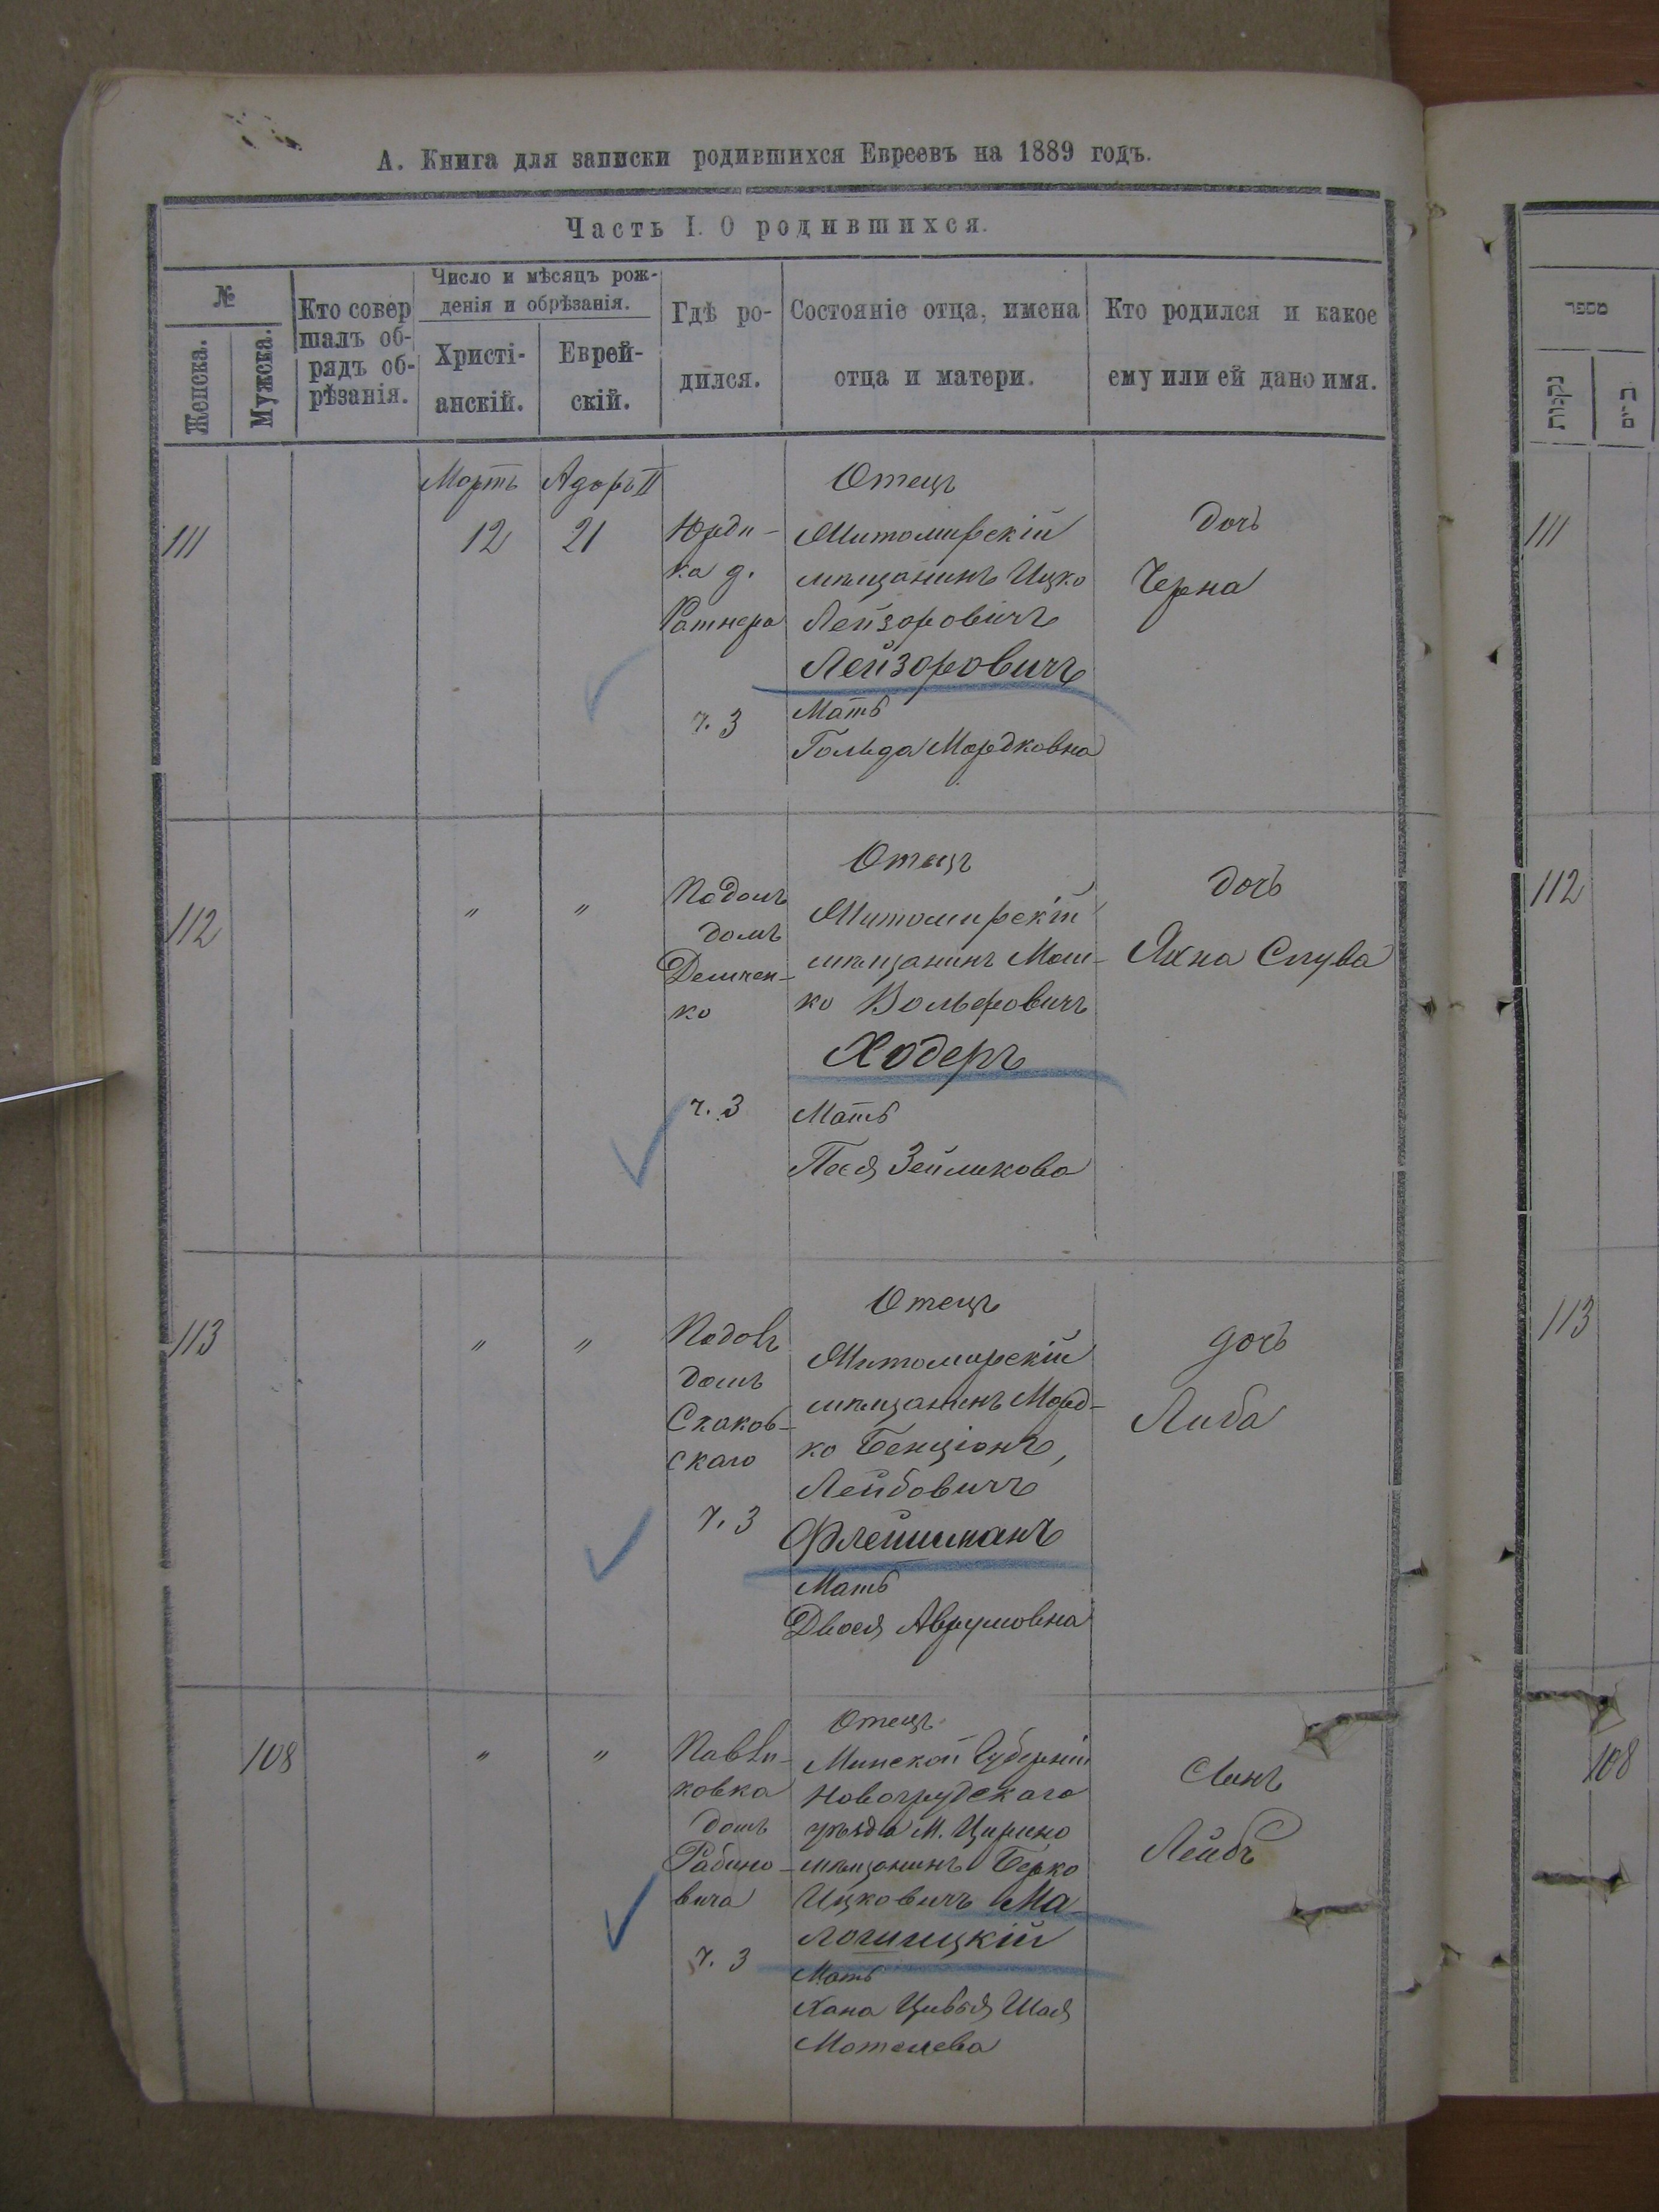 А. Книга для записки родившихся Евреевъ на 1889 годъ.
Часть I. О родившихся.
№
Женска.
Мужска.
Кто совер
шалъ об-
рядъ об-
рѣзанія.
Число и мѣсяцъ рож-
денія и обрѣзанія.
Христі-
анскій.
Еврей-
скій.
Гдѣ ро-
дился.
Состояніе отца, имена
отца и матери.
Кто родился и какое
ему или ей дано имя.
111
Мартъ
12
Адоръ II
21
Юрди-
ка д.
Ратнера
ч. 3
Отецъ
Житомирскій
мѣщанинъ Ицко
Лейзоровичъ
Лейзоровичъ
Мать
Гольда Мордковна
дочь
Черна
112
"
"
Подолъ
домъ
Демчен-
ко
ч. 3
Отецъ
Житомирскій
мѣщанинъ Мош-
ко Вольфовичъ
Ходеръ
Мать
Песя Зейликова
дочь
Яхна Слува
113
"
"
домъ
Скаков-
скаго
ч. 3
Отецъ
Житомирскій
мѣщанинъ Морд-
ко Бенціонъ,
Лейбовичъ
Флейшманъ
Мать
Двося Аврумовна
дочь
Либа
108
"
"
Павли-
ковка
домъ
Рабино-
вича
ч. 3
Отецъ
Минской Губерніи
Новогрудскаго
уѣзда М. Цирино
мѣщанинъ Берко
Ицковичъ Ма-
Мать
Хана Цивья Шая
Мотелева
Сынъ
Лейбъ
מספר
נקבות
זכרים
111
112
113
108